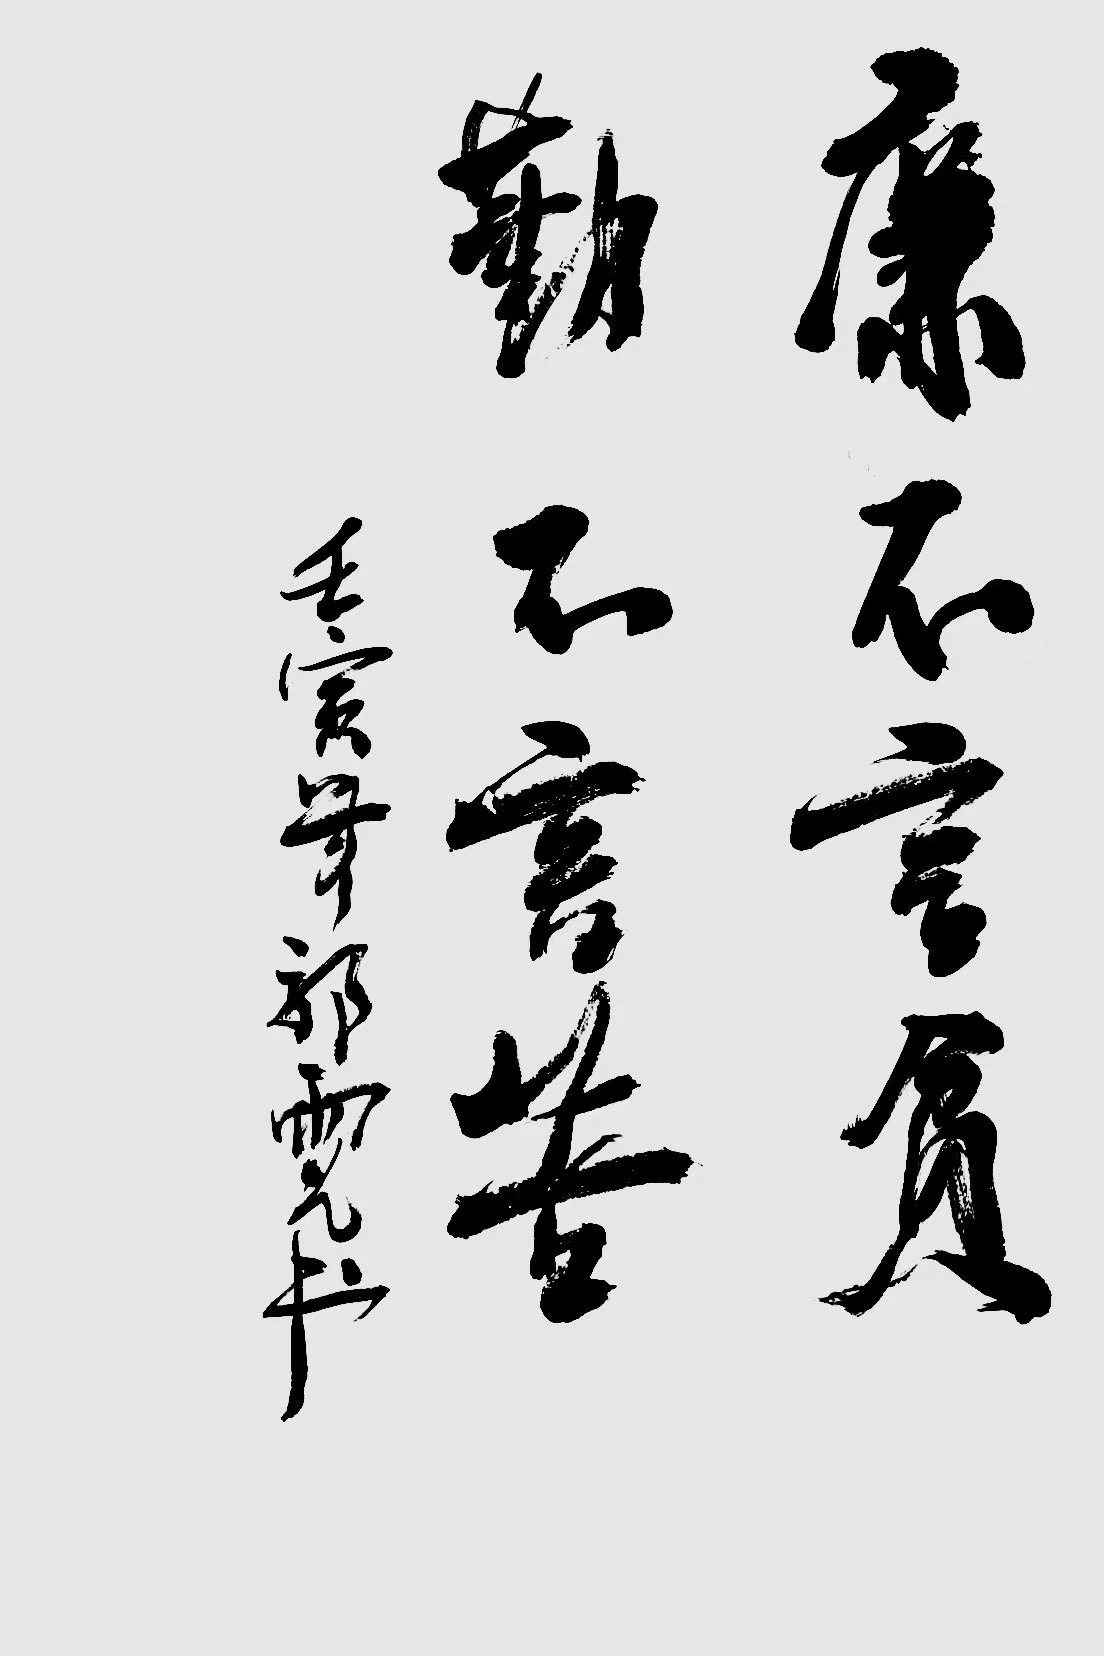 廉不言貪
勤不言苦
壬寅年郭霓书